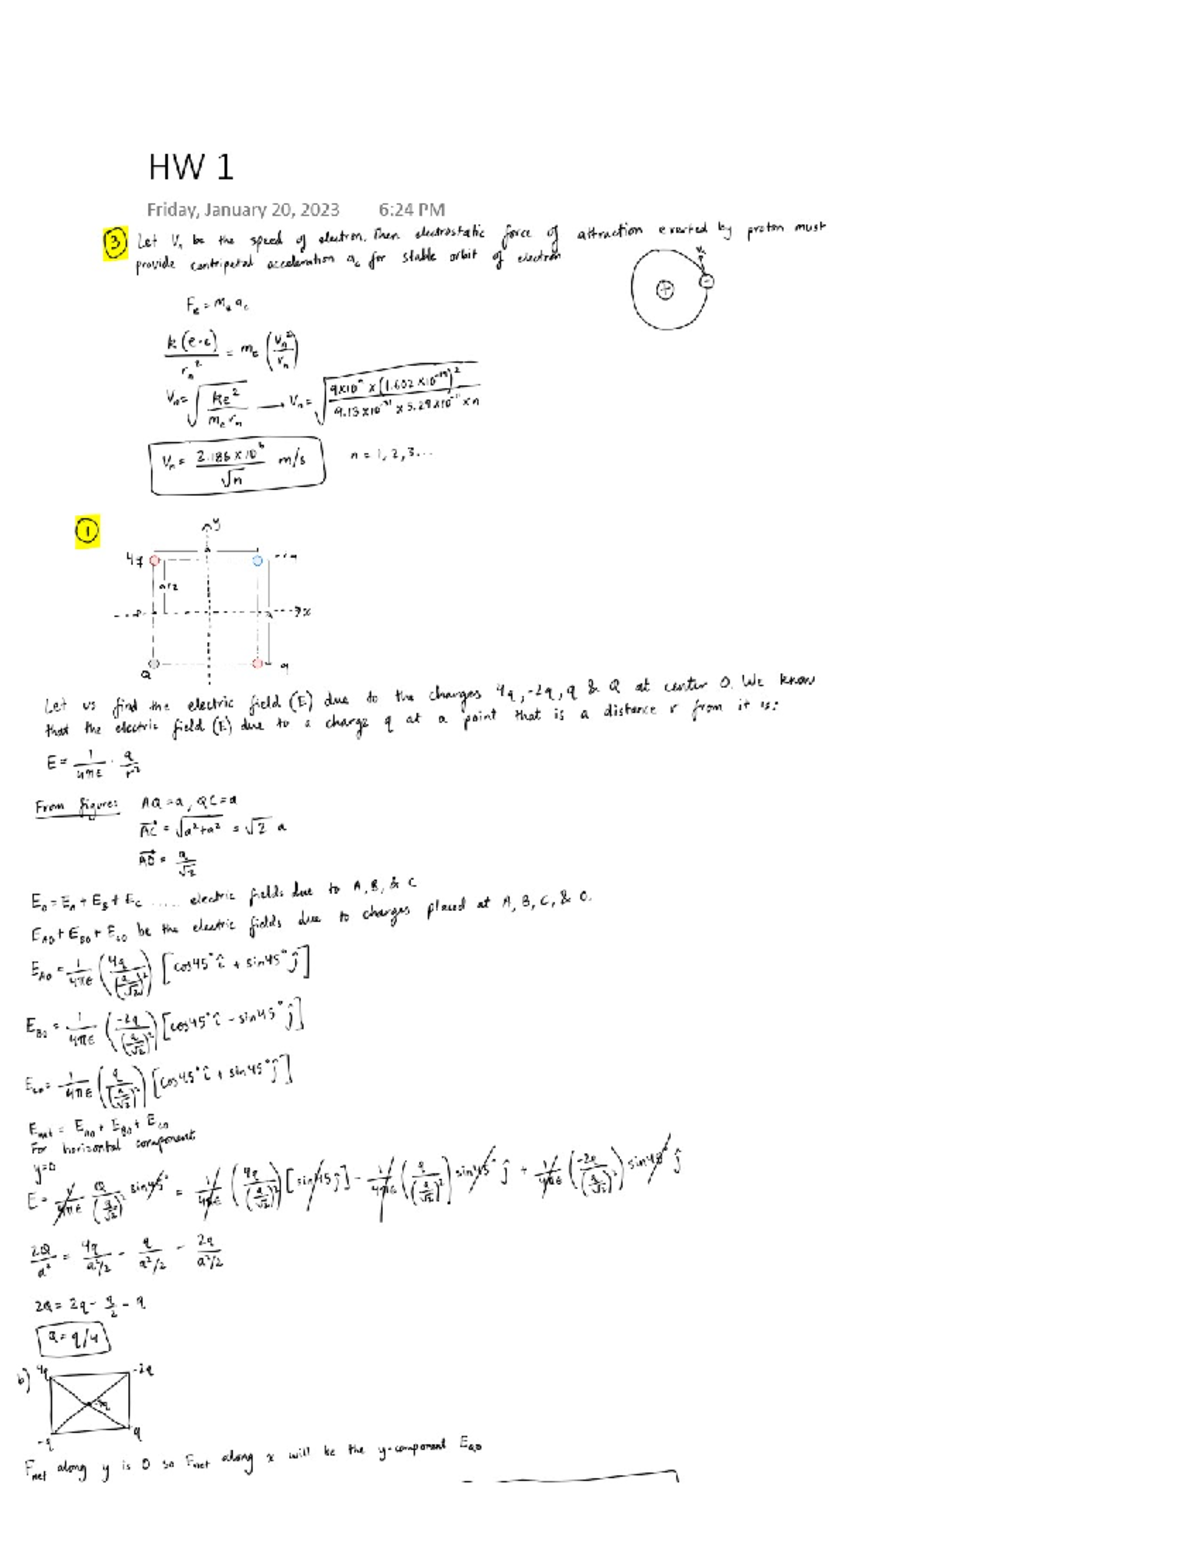 HW 1
Friday, January 20, 2023 6:24 PM
③ Let Vn be the speed of electron. Then electrostatic force of attraction exerted by proton must
provide centripetal acceleration ac for stable orbit of electron
Fe = me ac
k(e·e)/rn² = me (Vn²/rn)
Vn = √(ke²/(me rn)) → Vn = √(9×10⁹ × (1.602×10⁻¹⁹)²/(9.13×10⁻³¹ × 5.29×10⁻¹¹ × n))
Vn = 2.186×10⁶/√n m/s n = 1, 2, 3...
①
y
4q
a/2
x
Q q
Let us find the electric field (E) due to the charges 4q, -2q, q & Q at center O. We know
that the electric field (E) due to a charge q at a point that is a distance r from it is:
E = 1/4πε · q/r²
From figure: AQ = a, QC = a
AC = √(a²+a²) = √2 a
AO = a/√2
Eo = EA + EB + EC ..... electric fields due to A, B, & C
EAO + EBO + ECO be the electric fields due to charges placed at A, B, C, & O.
EAO = 1/4πε (4q/(a/√2)²) [cos45° î + sin45° ĵ]
EBO = 1/4πε (-2q/(a/√2)²) [cos45° î - sin45° ĵ]
ECO = 1/4πε (q/(a/√2)²) [cos45° î + sin45° ĵ]
Enet = EAO + EBO + ECO
For horizontal component
y=0
E = 1/4πε Q/(a/√2)² sin45° = 1/4πε (4q/(a/√2)²) [sin45 ĵ] - 1/4πε (q/(a/√2)²) sin45° ĵ + 1/4πε (-2q/(a/√2)²) sin45° ĵ
2Q/a² = 4q/a²/2 - q/a²/2 - 2q/a²/2
2Q = 2q - q/2 - q
Q = q/4
b) 4q -2q
-q q
Fnet along y is 0 so Fnet along x will be the y-component